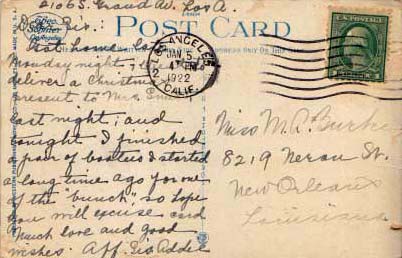 21065. Grand Av. Los A.
POST CARD
Dear Sis:
Got home last
Monday night;
deliver a Christmas
present to Mrs.
last night; and
tonight I finished
a pair of bootees I started
a long time ago for one
of the "bunch"; so hope
you will excuse card
Much love and good
wishes. Aff. Sis Addie
LOS ANGELES
JAN 5
1922
CALIF.
Miss M. R. Burke
8219 Neron St.
New Orleans
Louisiana